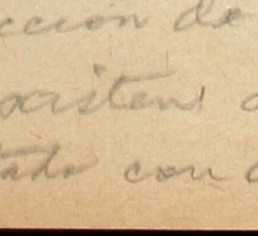 cción de
existen
tado con